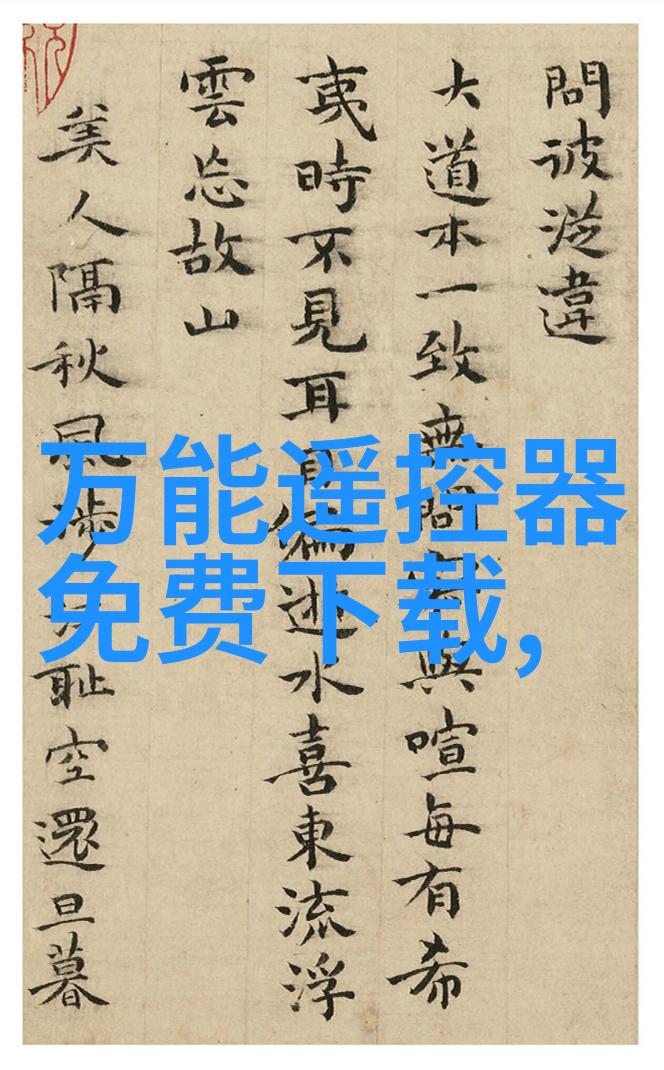 問彼從違
大道本一致無問與喧每有希
夷時不見耳目偏逝水喜東流浮
雲忘故山
美人隔秋風涉耻空還旦暮
万能遥控器
免费下载,